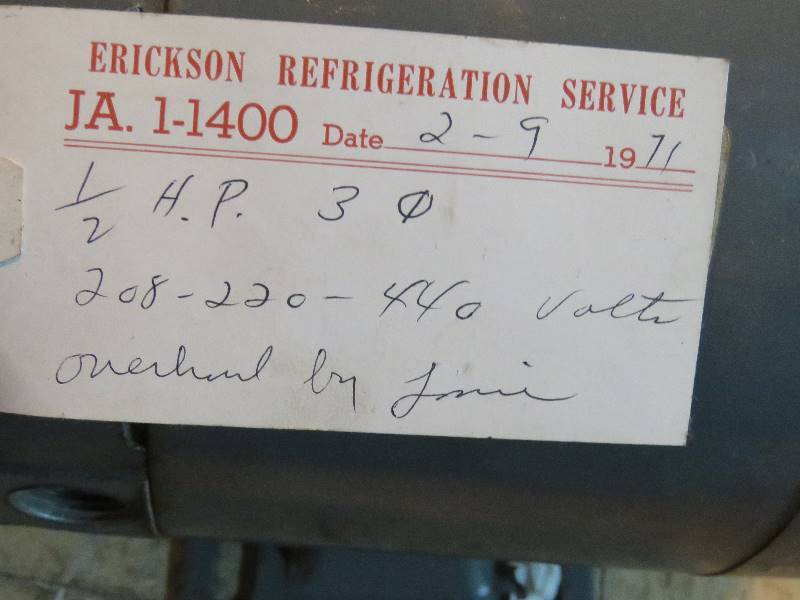 ERICKSON REFRIGERATION SERVICE
JA. 1-1400 Date 2-9 1971
1/2 H.P. 3 Ø
208-220-440 Volts
overhaul by